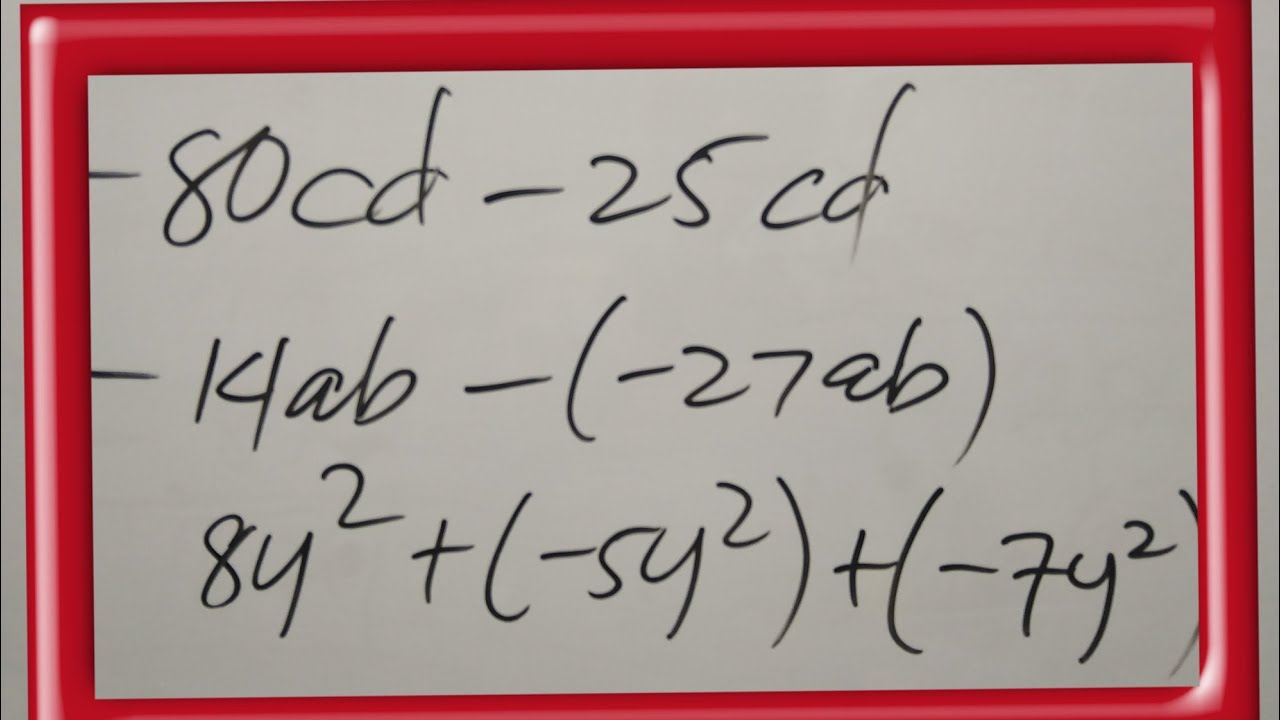 - 80cd - 25cd
- 14ab - (-27ab)
8y² + (-5y²) + (-7y²)